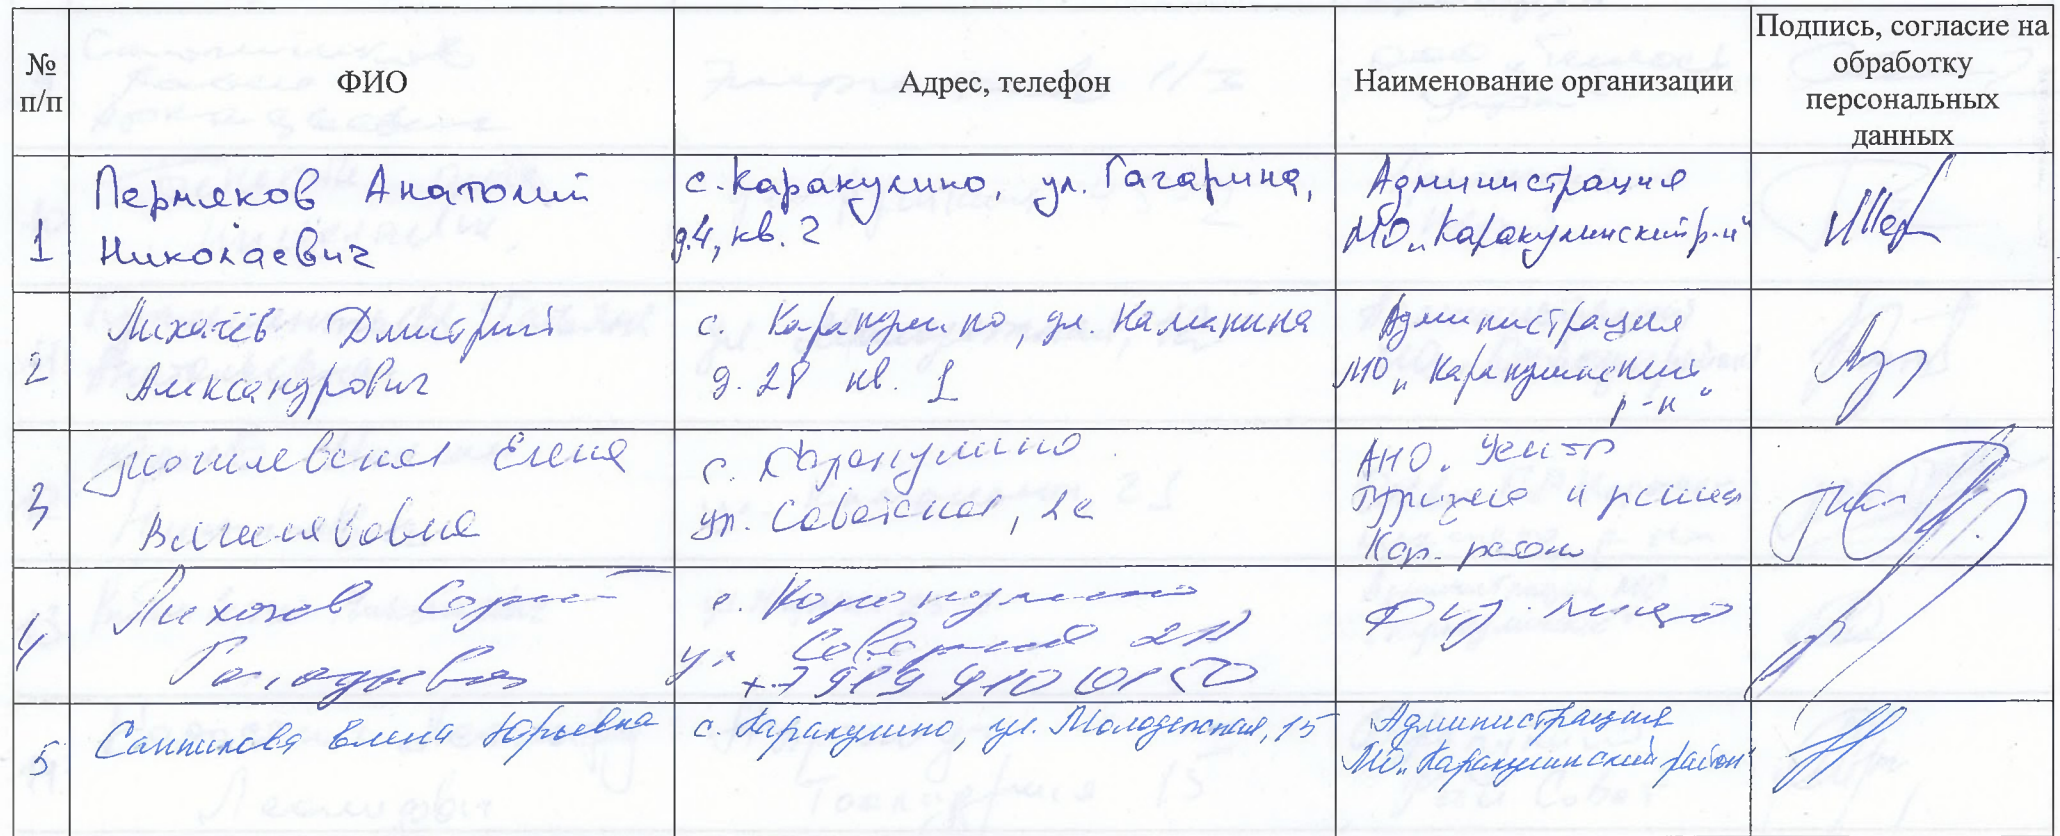 № п/п
ФИО
Адрес, телефон
Наименование организации
Подпись, согласие на
обработку
персональных
данных
1
Пермяков Анатолий
Николаевич
с. Каракулино, ул. Гагарина,
д.4, кв. 2
Администрация
МО „Каракулинский р-н"
2
Лихачёв Дмитрий
Александрович
с. Каракулино, ул. Калинина
д. 28 кв. 1
Администрация
МО „Каракулинский
р-н"
3
Могилевская Елена
с. Каракулино
ул. Советская, 2а
АНО „Центр
Кар. района
4
Лихачев
с. Каракулино
ул
Физ. лицо
5
Санникова Елена Юрьевна
с. Каракулино, ул. Молодежная, 15
Администрация
МО „Каракулинский район"